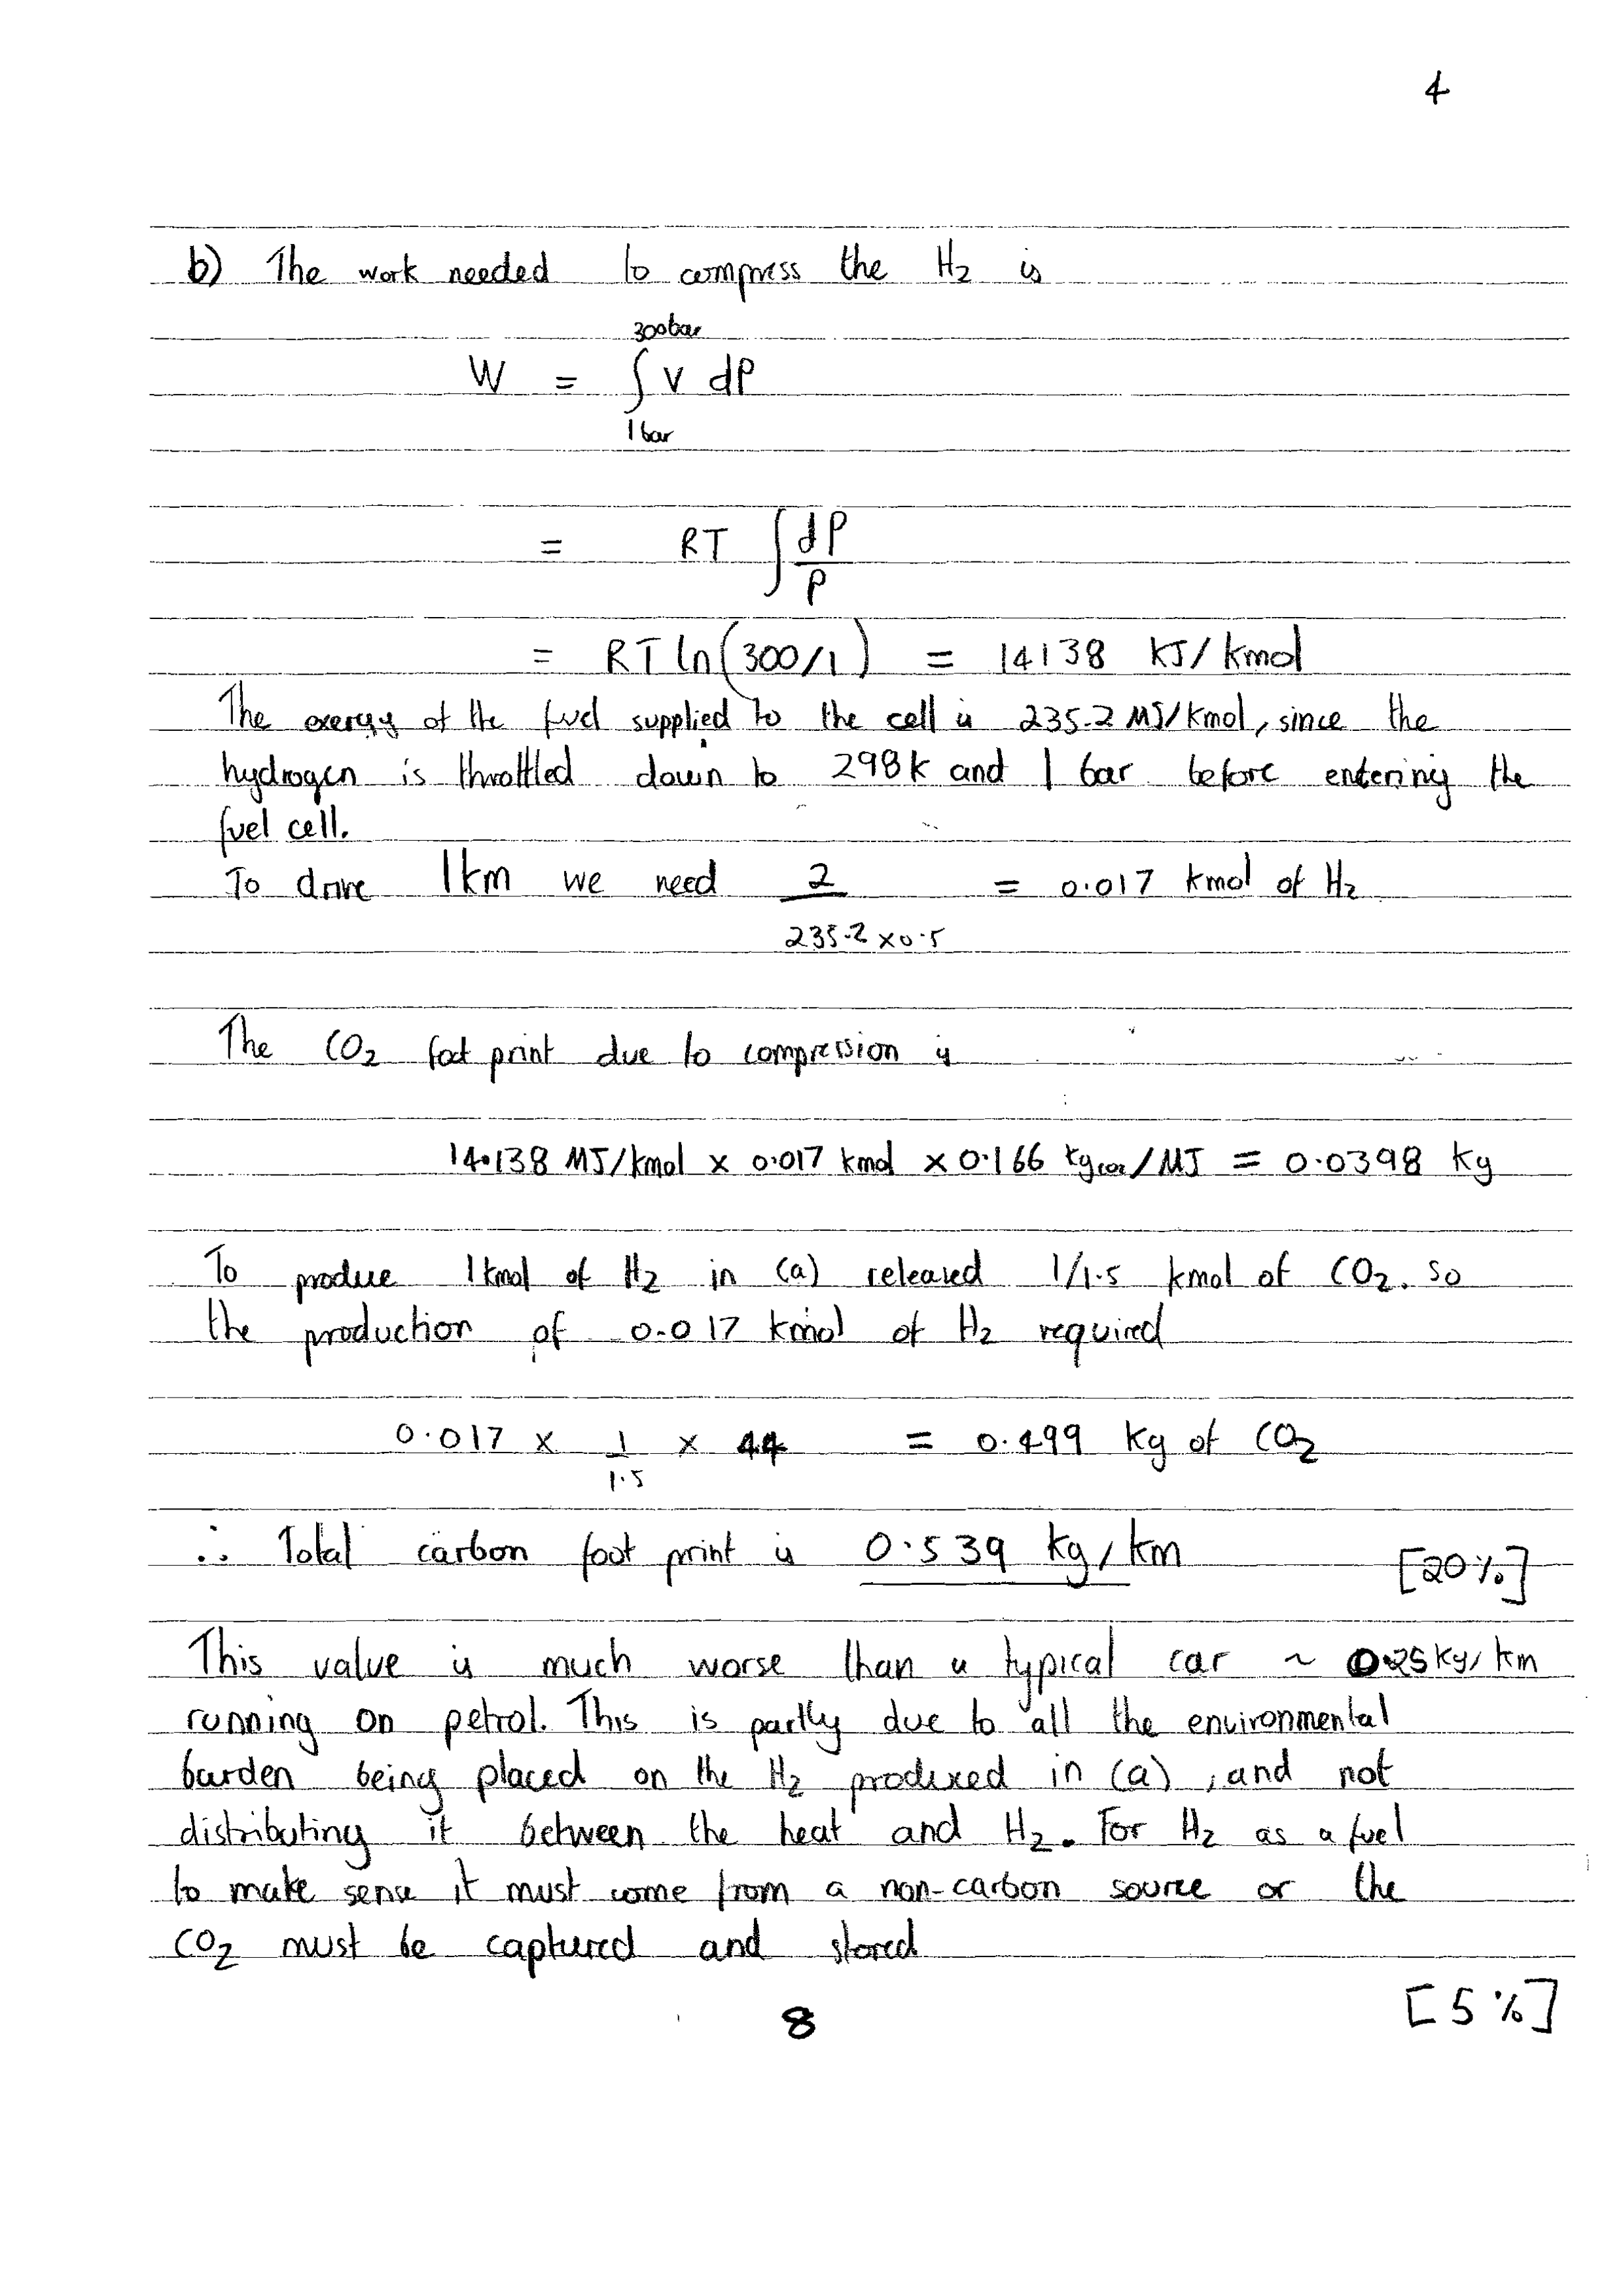 4
b) The work needed to compress the H₂ is
300bar
W = ∫ V dP
1 bar
= RT ∫ dP/P
= RT ln(300/1) = 14138 KJ/kmol
The exergy of the fuel supplied to the cell is 235.2 MJ/kmol, since the
hydrogen is throttled down to 298K and 1 bar before entering the
fuel cell.
To drive 1km we need 2 / 235.2 × 0.5 = 0.017 kmol of H₂
The CO₂ foot print due to compression is
14.138 MJ/kmol × 0.017 kmol × 0.166 kgCO2/MJ = 0.0398 kg
To produce 1kmol of H₂ in (a) released 1/1.5 kmol of CO₂. so
the production of 0.017 kmol of H₂ required
0.017 × 1/1.5 × 44 = 0.499 kg of CO₂
∴ Total carbon foot print is 0.539 kg/km [20%]
This value is much worse than a typical car ~ 0.25 kg/km
running on petrol. This is partly due to all the environmental
burden being placed on the H₂ produced in (a), and not
distributing it between the heat and H₂. For H₂ as a fuel
to make sense it must come from a non-carbon source or the
CO₂ must be captured and stored
[5%]
8